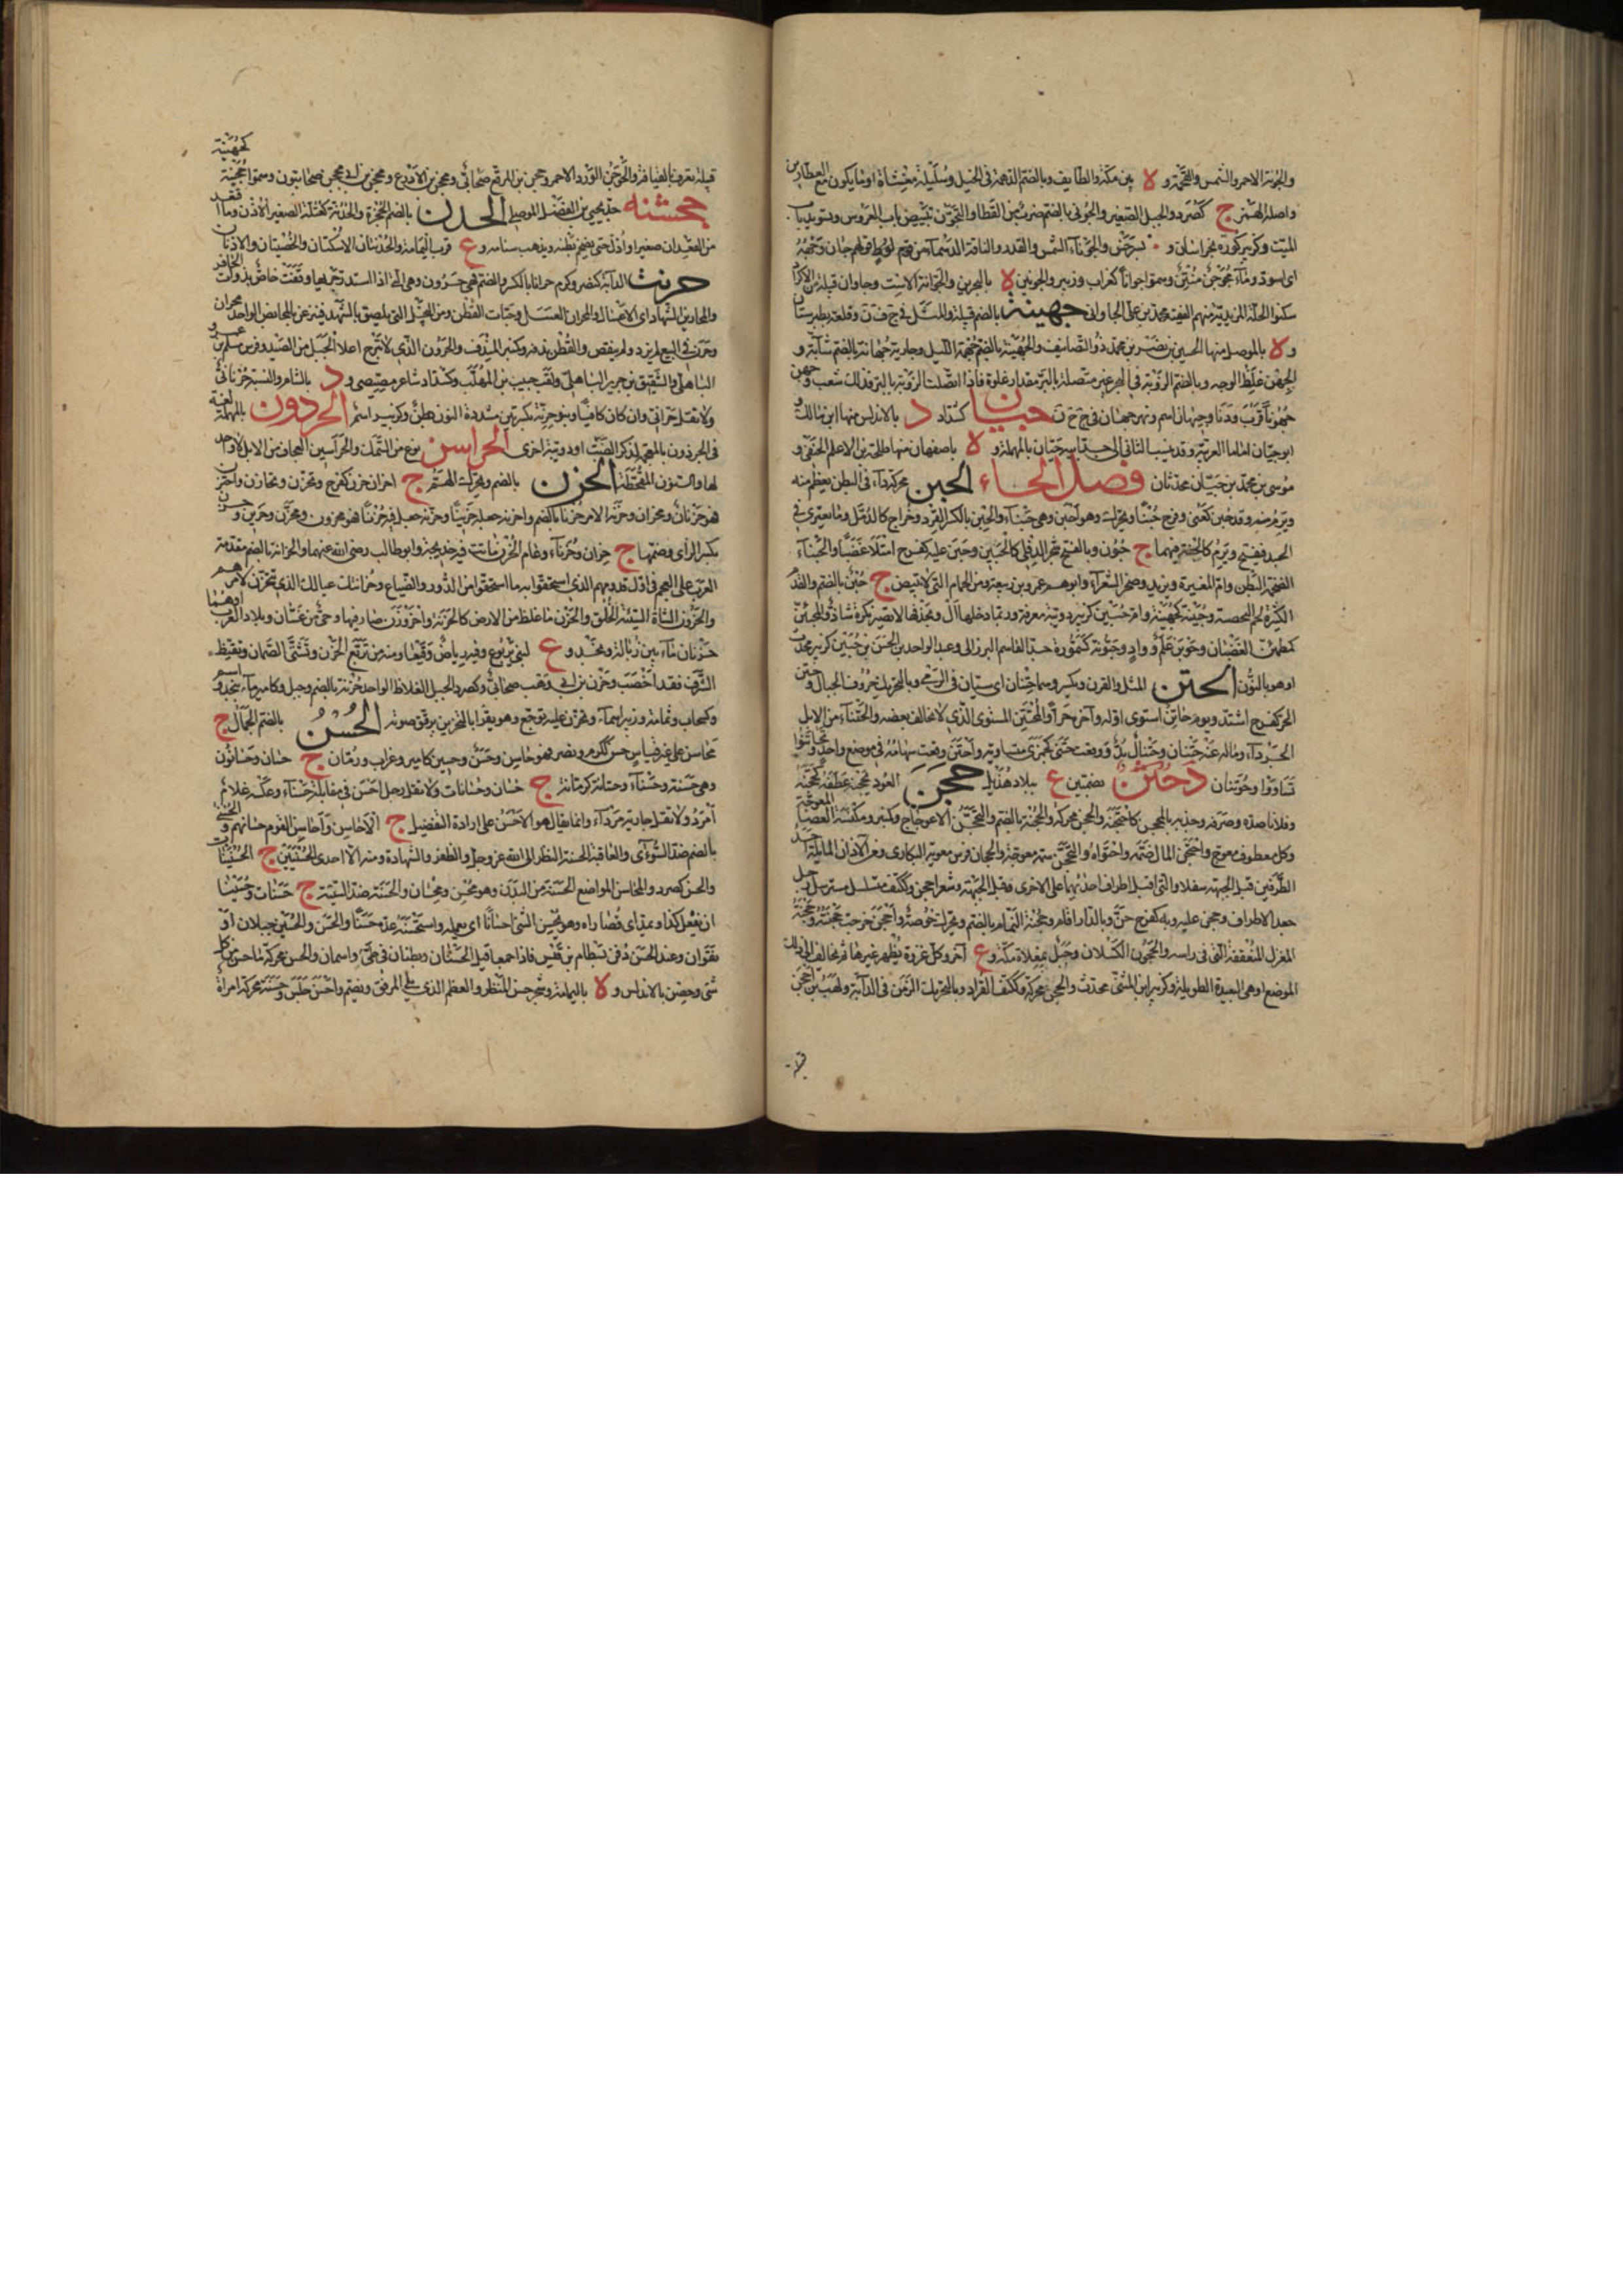 والجونة الاحمر والشمس والفحمة و ة بين مكة والطايف وبالضم الدهمة في الخيل وسليلة مغشاة ادما يكون مع العطارين
واصله الهمز ج كصرد والجبل الصغير والجوني بالضم ضرب من القطا والتجون تبييض باب العروس وتسويد باب
الميت وكزبير كورة بخراسان و بسرخس والجوناء الشمس والقدر والناقة الدهماء
اى اسود وسموا جوانا كغراب وزبير والجونين ة بالبحرين والجوانة الاست وجاوان قبيلة من الاكراد
سكنوا الحلة المزيدية منهم الفقيه محمد بن على الجاوانى جهينة بالضم قبيلة والمثل في ج ف ن وقلعة بطبرستان
و ة بالموصل منها الحسين بن نصر بن محمد ذو التصانيف والجهنة بالضم جهمة الليل وجارية جهانة بالضم شابة و
الجهن غلظ الوجه وبالضم
جهونا قرب ودنا وجيهان اسم ونهر جيهان في ج ح ن جيان كشداد د بالاندلس منها ابن مالك و
ابو حيان اماما العربية ة باصفهان منها طلحة بن الاعلم الحنفى و
موسى بن محمد بن جيان محدثان فصل الحاء الحبن محركة داء في البطن يعظم منه
ويرم منه وقد حبن كعنى وفرح حبنا ويحرك وهو احبن وهى حبناء والحبن بالكسر القرد وخراج كالدمل وما يعترى في
الجسد فيقيح ويرم ج حبون وبالفتح شجر الدفلى كالحبين وحبن عليه كفرح امتلأ غضبا والحبناء
الضخمة البطن وام المغيرة ويزيد وصخر الشعراء وابوهم عمرو بن ربيعة ومن الحمام التى لا تبيض ج حبن بالضم والقدم
الكثيرة لحم البخصة وحبينة كجهينة وام حبين كزبير دويبة معرفة وربما دخلها ال وبحذفها لا تصير نكرة شاذ والمحبئن
كمطمئن الغضبان وحبونن علم و واد وحبونة كسمورة جد القاسم البرزالى وعبد الواحد بن الحسن بن حبين كزبير محدث
او هو بالنون الحتن المثل والقرن ويكسر وهما حتنان اى سيان في الرمى وبالتحريك حروف الجبال وحتن
الحر كفرح اشتد ويوم حاتن استوى اوله واخره حرا والمحتتن المستوى الذى لا يخالف بعضه بعضا
وما له عنه حتنان وحتنال بد ووقعت النبل حتنى كجمزى متساوية واحتتن وقعت سهامه في موضع واحد وتحاتنوا
تساووا وحوتنان د حثن بضمتين ع ببلاد هذيل حجن العود يحجنه عطفه كحجنه
وفلانا صده وصرفه وجذبه بالمحجن كاحتجنه والحجن محركة والحجنة بالضم والتحجن الاعوجاج وكمنبر ومكنسة العصا المعوجة
وكل معطوف معوج واحتجن المال ضمه واحتواه والتحجين سمة معوجة
الطرفين قبل الجبهة سفلا
جعد الاطراف وحجن عليه وبه كفرح ضن وبالدار اقام وحجنة الثمام بالضم ويحرك خوصته واحجن خرجت حجنته وحجنة
المغزل المنعقفة التى في راسه والحجون الكسلان وجبل بمعلاة مكة و ع اخر وكل غزوة يظهر غيرها ثم يخالف الى ذلك
الموضع او هى البعيدة الطويلة وكزبير ابن المثنى محدث والحجن محركة وككتف القراد وبالتحريك الزمن في الدابة ولهب بن احجن
قبيلة
كجهينة
قبيلة تعرف بالعيافة والحوجن الورد الاحمر وحجن بن المرقع صحابى ومحجن بن الادرع ومحجن بن ابى محجن صحابيون وسموا حجينة
حجشنه جد يحيى بن الفضل الموصلى الحدن بالضم الحجزة والحذنة كعتلة الصغير الاذن
حتى يضخم بطنه ويذهب سنامه و ع قرب اليمامة والحذنتان الاسكتان والخصيتان والاذنان
حرنت الدابة كنصر وكرم حرانا بالكسر والضم فهى حرون وهى التى اذا استدر جريها وقفت خاص بذوات الحافر
والمحارين الشهاد اى الاعسال والمحران العسل وحبات القطن ومن النحل التى يلصق بالشهد فينزعن بالمحابض الواحد محران
وحرن في البيع لم يزد ولم ينقص والقطن ندفه وكمنبر المندف والحرون الذى لا يبرح اعلى الجبل من الصيد وفرس مسلم بن عمرو
الباهلى والشقيق بن جرير الباهلى ولقب حبيب بن المهلب وكشداد شاعر مصيصى و د بالشام والنسبة حرنانى
ولا تقل حرانى وان كان قياسا وبنو حرنة بكسرتين مشددة النون بطن وكزبير اسم الحردون بالمهملة لغة
في الحرذون بالمعجمة لذكر الضب او دويبة اخرى الحراسن نوع من السمك والحراسين العجاف من الابل لا واحد
لها والسنون المقحطة الحزن بالضم ويحرك الهم ج احزان حزن كفرح وتحزن وتحازن واحتزن
فهو حزنان ومحزان وحزنه الامر حزنا بالضم واحزنه جعله حزينا وحزنه جعل فيه حزنا فهو محزون ومحزن وحزين وحزن
بكسر الزاى وضمها ج حزان وحزناء وعام الحزن ماتت فيه خديجة وابو طالب رضى الله عنهما والحزانة بالضم قدمة
العرب على العجم في اول قدومهم الذى استحقوا به ما استحقوا من الدور والضياع وحزانتك عيالك الذى تتحزن لامرهم
والحزون الشاة السيئة الخلق والحزن ما غلظ من الارض كالحزنة واحزن صار فيها وحى من غسان وبلاد العرب او هما
حزنان ماء بين زبالة ونجد و ع لبنى يربوع وفيه رياض وقيعان ومنه من تربع الحزن وتشتى الصمان وتقيظ
الشرف فقد اخصب وحزن بن ابى وهب صحابى وكصرد الجبل الغلاظ الواحد حزنة بالضم وجبل وكامير ماء بنجد واسم
وكسحاب وثمامة وزبير اسماء وتحزن عليه توجع وهو يقرأ بالتحزين يرقق صوته الحسن بالضم الجمال ج
محاسن على غير قياس حسن ككرم ونصر فهو حاسن وحسن وحسين كامير وغراب ورمان ج حسان وحسانون
وهى حسنة وحسناء وحسانة كرمانة ج حسان وحسانات ولا تقل رجل احسن في مقابلة حسناء وعكسه غلام
امرد ولا تقل جارية مرداء وانما يقال هو الاحسن على ارادة التفضيل ج الاحاسن واحاسن القوم حسانهم والحسنى
بالضم ضد السوءى والعاقبة الحسنة والنظر الى الله عز وجل والظفر والشهادة ومنه الا احدى الحسنيين ج الحسنيات
والحسن كصرد والمحاسن المواضع الحسنة من البدن وهو محسن ومحسان والحسنة ضد السيئة ج حسنات وحسيناه
ان يفعل كذا ويمد اى قصاراه وهو يحسن الشئ احسانا اى يعلمه واستحسنه عده حسنا والحسن والحسين جبلان او
نقوان وعند الحسن دفن بسطام بن قيس فاذا جمعا قيل الحسنان وبطنان في طيئ واسمان والحسن محركة ما حسن من كل
شئ وحصن بالاندلس و ة باليمامة وشجر حسن المنظر والعظم الذى يلى المرفق ويضم واحسن جلس وحسنة محركة امراة